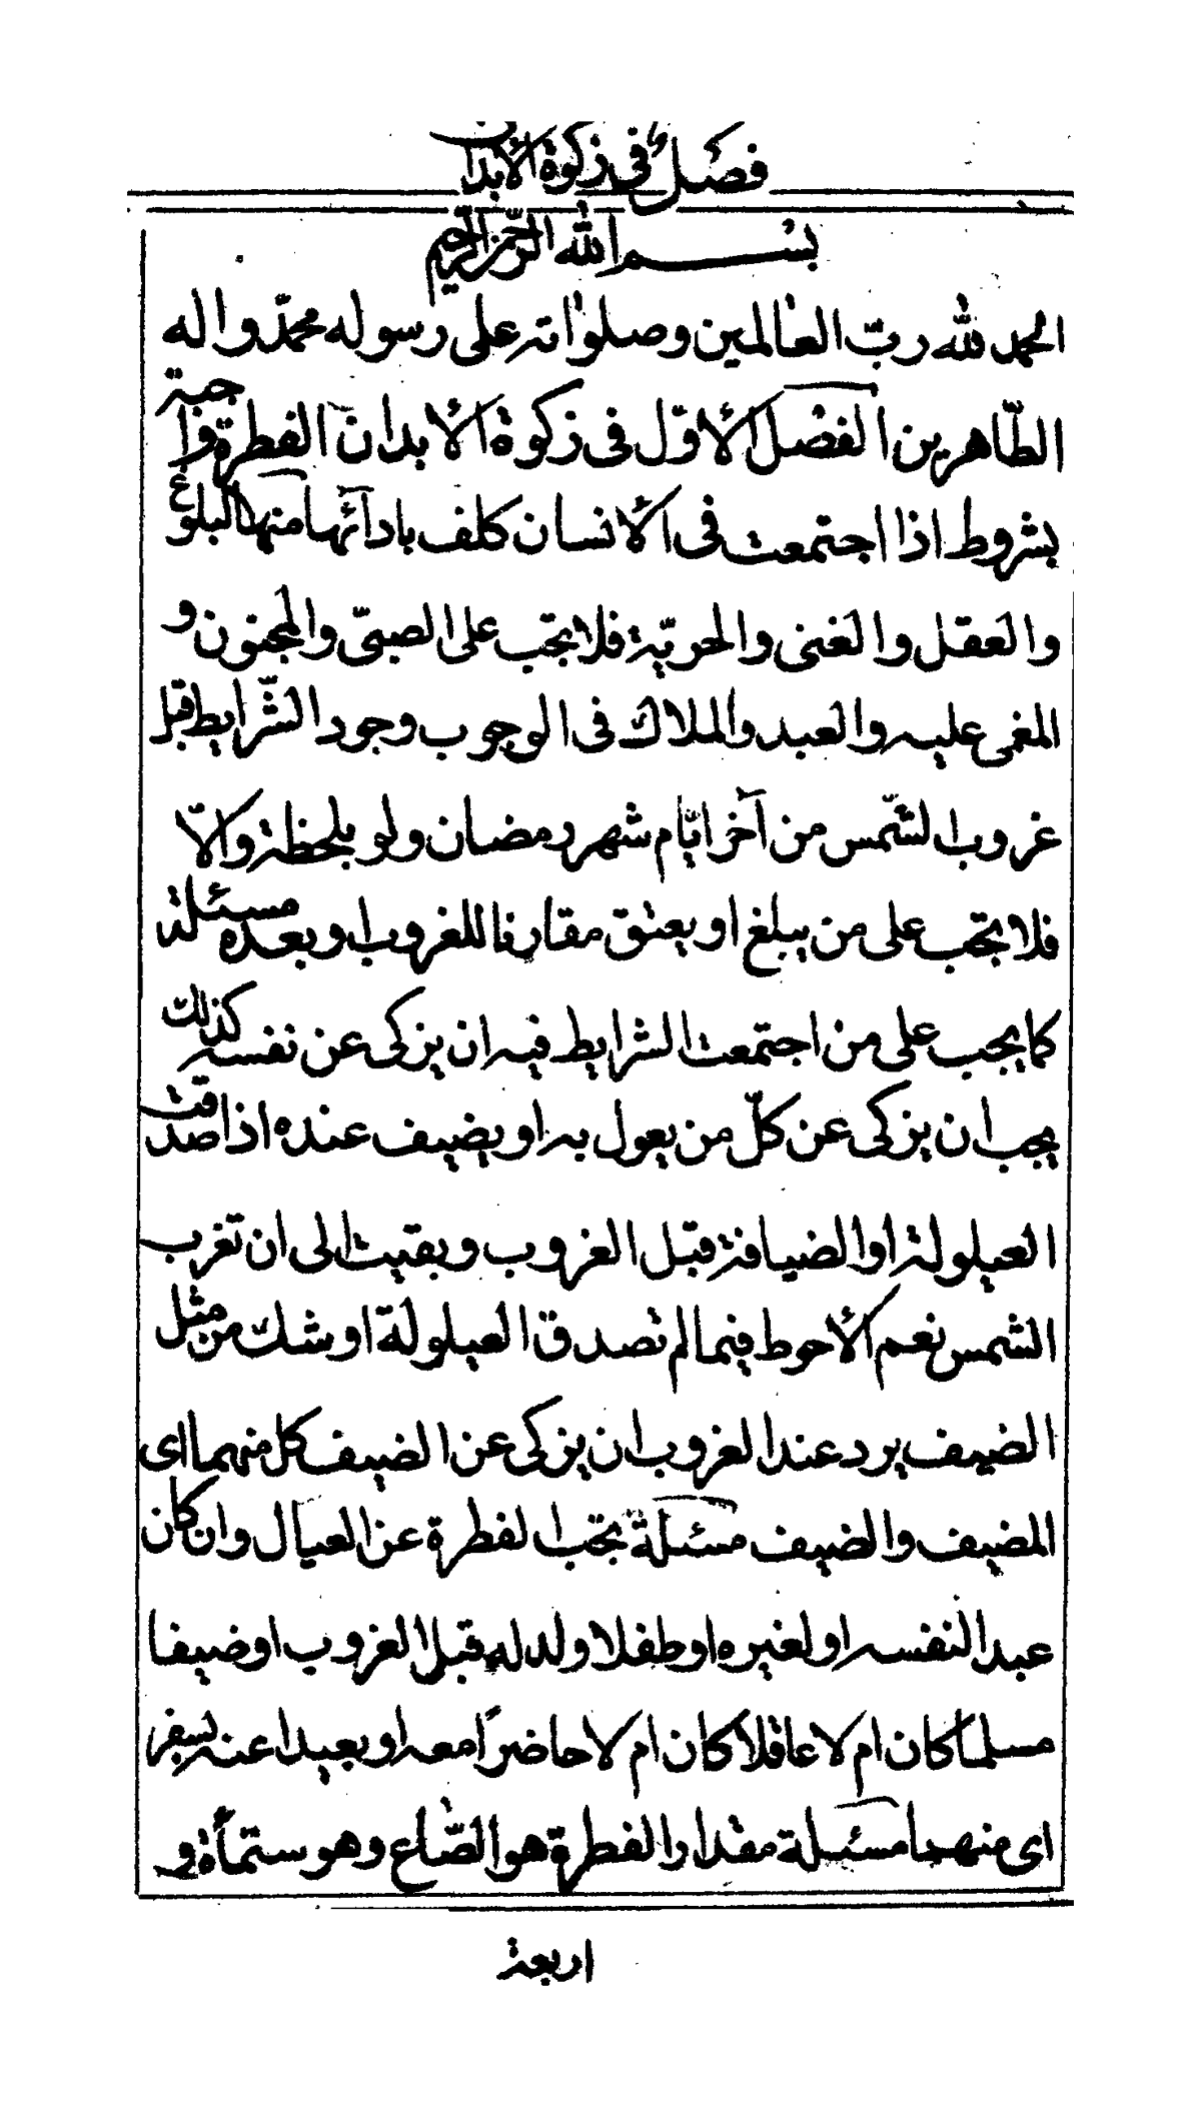 فصل في زكوة الأبدان
بسم الله الرّحمن الرّحيم
الحمد لله ربّ العالمين وصلواته على رسوله محمّد واله
الطّاهرين الفصل الأوّل في زكوة الأبدان الفطرة واجبة
بشروط اذا اجتمعت في الأنسان كلف بادآئها منها البلوغ
والعقل والغنى والحريّة فلا تجب على الصبىّ والمجنون و
المغمى عليه والعبد والملاك في الوجوب وجود الشّرايط قبل
غروب الشّمس من آخر ايّام شهر رمضان ولو بلحظة والّا
فلا تجب على من يبلغ او يعتق مقارنا للغروب او بعده مسئلة
كما يجب على من اجتمعت الشرايط فيه ان يزكى عن نفسه كذلك
يجب ان يزكى عن كلّ من يعول به او يضيف عنده اذا صدقت
العيلولة او الضيافة قبل الغروب وبقيت الى ان تغرب
الشمس نعم الأحوط فيما لم تصدق العيلولة او شك من مثل
الضيف يرد عند الغروب ان يزكى عن الضيف كل منهما اى
المضيف والضيف مسئلة تجب الفطرة عن العيال وان كان
عبدا لنفسه او لغيره او طفلا ولد له قبل الغروب او ضيفا
مسلما كان ام لا عاقلا كان ام لا حاضرًا معه او بعيدا عنه بسفر
اى منهما مسئلة مقدار الفطرة هو الصّاع وهو ستمأة و
اربعة